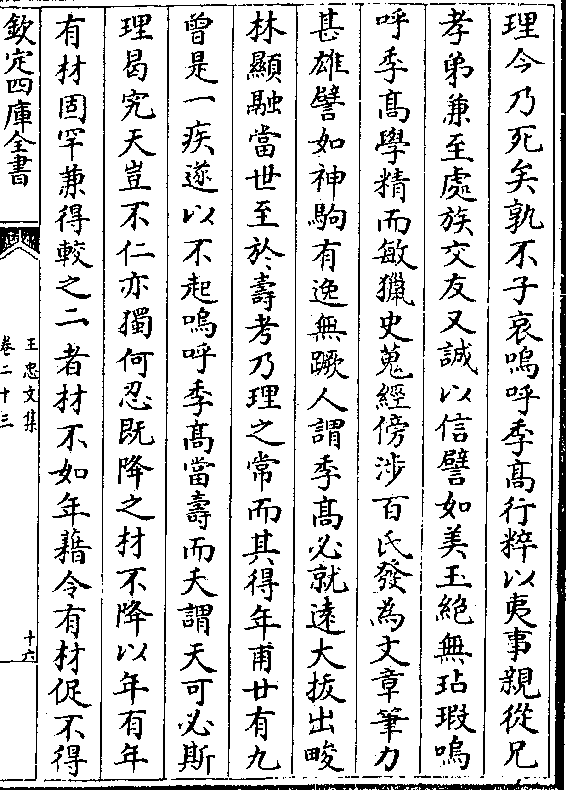 理今乃死矣孰不子哀嗚呼季髙行粹以夷事親從兄
孝弟兼至處族交友又誠以信譬如美玉絶無玷瑕嗚
呼季髙學精而敏獵史蒐經傍渉百氏發為文章筆力
甚雄譬如神駒有逸無蹶人謂季髙必就逺大拔出畯
林顯融當世至於壽考乃理之常而其得年甫廿有九
曽是一疾遂以不起嗚呼季髙當壽而夭謂天可必斯
理曷究天豈不仁亦獨何忍既降之材不降以年有年
有材固罕兼得較之二者材不如年藉令有材促不得
欽定四庫全書
王忠文集
卷二十三
十六